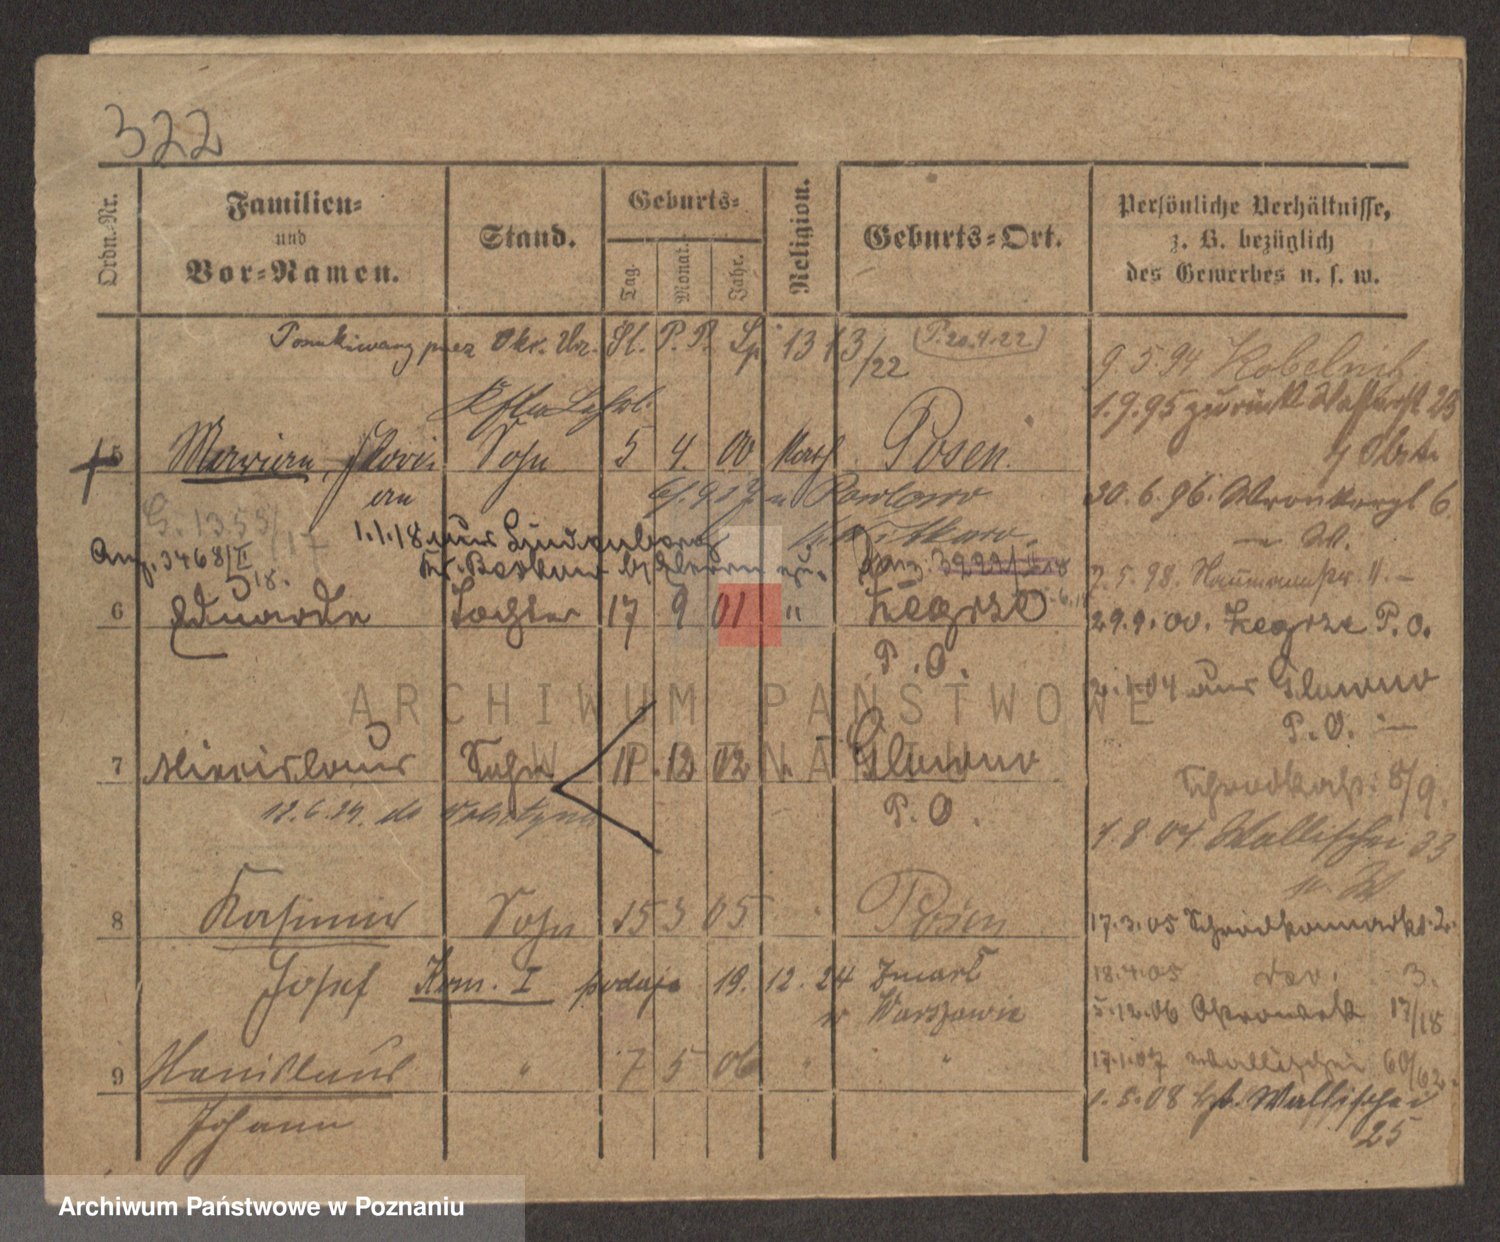 322
Ordn.-Nr.
Familien-
und
Vor-Namen.
Stand.
Geburts-
Tag.
Monat.
Jahr.
Religion.
Geburts-Ort.
Persönliche Verhältnisse,
z. B. bezüglich
des Gewerbes u. s. w.
Poszukiwany przez Okr. Urz. Śl. P. P. 13 13/22 (P. 20.4.22)
9.5.94 Kobelnik
1.9.95 zurück 25
5 Marian, Flori Sohn 5 4. 00 kath Posen.
an
20.6.96. Wronkerpl 6
G. 1353/17
1.1.18 aus Lindenberg
Anz. 3468/II 18.
Kr. Beskow b/
7.5.98. Naumannstr. 11. -
6 Eduarde Tochter 17 9 01 " Zegrze
P. O.
29.9.00. Zegrze P.O.
2.1.04 aus Glowno
P.O. -
7 Miecislaus Sohn 11. 12 02 " Glowno
P. O.
Schrodkapl. 8/9.
12.6.24. do Wolsztyna
1.8.04 Wallischei 33
8 Kasimir Sohn 15 3 05 " Posen
17.3.05 Schrodkamarkt 2.
Josef Kom. I podaje 19. 12. 24 zmarł
w Warszawie
18.4.05 3.
5.12.06 Ostrowek 17/18
9 Stanislaus " 7 5 06 " "
17.1.07 Wallischei 60/62.
Johann
1.5.08 Wallischei
25
ARCHIWUM PAŃSTWOWE
W POZNANIU
Archiwum Państwowe w Poznaniu